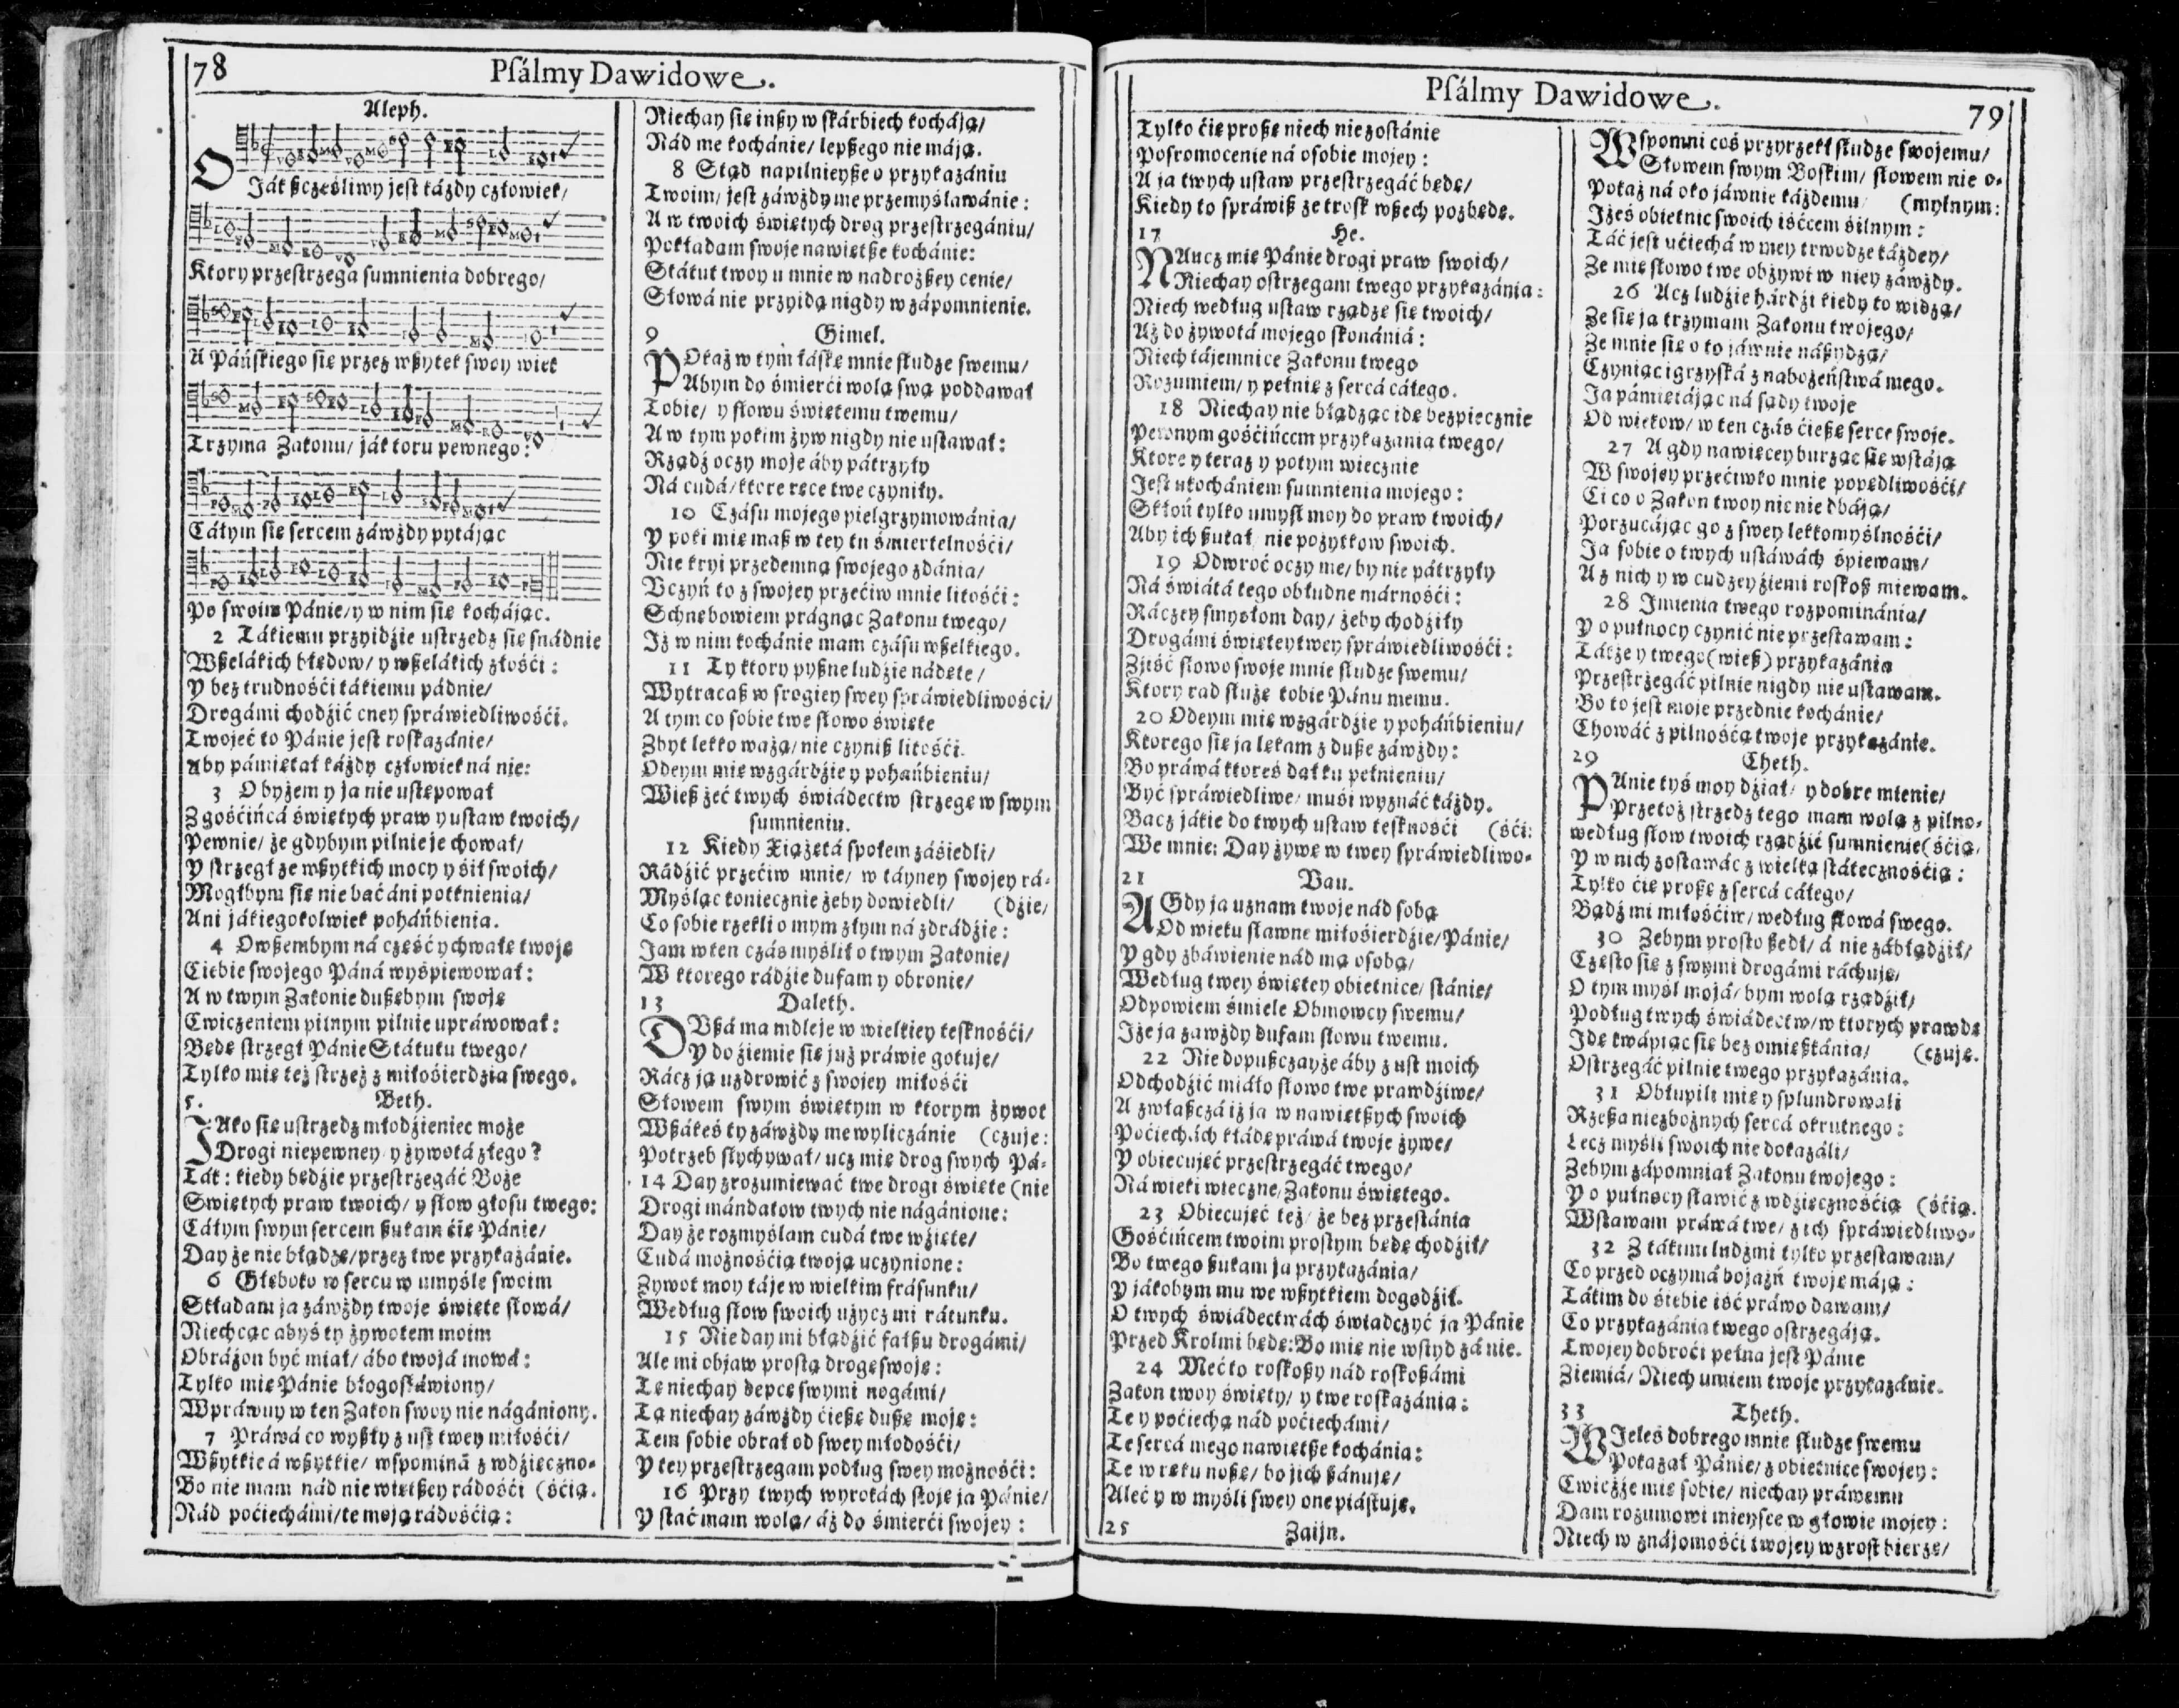 78
Psálmy Dawidowe.
Aleph.
O Ják szczęśliwy jest káżdy człowiek/
Ktory przestrzega sumnienia dobrego/
A Páńskiego się przez wszytek swoy wiek
Trzyma Zakonu/ ják toru pewnego:
Cáłym się sercem záwżdy pytájąc
Po swoim Pánie/ y w nim się kochájąc.
2 Tákiemu przyidźie ustrzedz się snádnie
Wszelákich błędow/ y wszelákich złośći:
Y bez trudnośći tákiemu pádnie/
Drogámi chodźić cney spráwiedliwośći.
Twojeć to Pánie jest roskazánie/
Aby pámiętał káżdy człowiek ná nie:
3 O byżem y ja nie ustępował
Z gośćińcá świętych praw y ustaw twoich/
Pewnie/ że gdybym pilnie je chował/
Y strzegł ze wszytkich mocy y śił swoich/
Mogłbym się nie bać áni potknienia/
Ani jákiegokolwiek poháńbienia.
4 Owszembym ná cześć y chwałę twoję
Ciebie swojego Páná wyśpiewował:
A w twym Zakonie duszębym swoję
Cwiczeniem pilnym pilnie upráwował:
Będę strzegł Pánie Státutu twego/
Tylko mię też strzeż z miłośierdzia swego.
5. Beth.
JAko się ustrzedz młodźieniec może
Drogi niepewney y żywotá złego?
Ták: kiedy będźie przestrzegáć Boże
Swiętych praw twoich/ y słow głosu twego:
Cáłym swym sercem szukam ćię Pánie/
Day że nie błądzę/ przez twe przykazánie.
6 Głęboko w sercu w umyśle swoim
Składam ja záwżdy twoje święte słowá/
Niechcąc abyś ty żywotem moim
Obráżon być miał/ ábo twojá mowá:
Tylko mię Pánie błogosłáwiony/
Wpráwuy w ten Zakon swoy nie nágániony.
7 Práwá co wyszły z ust twey miłośći/
Wszytkie á wszytkie/ wspominã z wdźięczno-
Bo nie mam nád nie więtszey rádośći (śćią.
Nád poćiechámi/ te moją rádośćią:
Niechay się inszy w skárbiech kochája/
Nád me kochánie/ lepszego nie máją.
8 Stąd napilnieysze o przykazániu
Twoim/ jest záwżdy me przemyślawánie:
A w twoich świętych drog przestrzegániu/
Pokładam swoje nawiętsze kochánie:
Státut twoy u mnie w nadroższey cenie/
Słowá nie przyidą nigdy w zápomnienie.
9 Gimel.
POkaż w tym łáskę mnie słudze swemu/
Abym do śmierći wolą swą poddawał
Tobie/ y słowu świętemu twemu/
A w tym pokim żyw nigdy nie ustawał:
Rządź oczy moje áby pátrzyły
Ná cudá/ ktore ręce twe czyniły.
10 Czásu mojego pielgrzymowánia/
Y poki mię masz w tey tu śmiertelnośći/
Nie kryi przedemną swojego zdánia/
Vczyń to z swojey przećiw mnie litośći:
Schnę bowiem prágnąc Zakonu twego/
Jż w nim kochánie mam czásu wszelkiego.
11 Ty ktory pyszne ludźie nádęte/
Wytracasz w srogiey swey spráwiedliwośći/
A tym co sobie twe słowo święte
Zbyt lekko ważą/ nie czynisz litośći.
Odeym mię wzgárdźie y poháńbieniu/
Wiesz żeć twych świádectw strzegę w swym
sumnieniu.
12 Kiedy Xiążętá społem záśiedli/
Rádźić przećiw mnie/ w táyney swojey rá-
Myśląc koniecznie żeby dowiedli/ (dźie/
Co sobie rzekli o mym złym ná zdrádźie:
Jam w ten czás myślił o twym Zakonie/
W ktorego rádźie dufam y obronie/
13 Daleth.
DVszá ma mdleje w wielkiey tesknośći/
Y do źiemie się już práwie gotuje/
Rácz ją uzdrowić z swojey miłośći
Słowem swym świętym w ktorym żywot
Wszákeś ty záwżdy me wyliczánie (czuje:
Potrzeb słychywał/ ucz mię drog swych Pá-
14 Day zrozumiewać twe drogi święte (nie
Drogi mándatow twych nie nágánione:
Day że rozmyślam cudá twe wźięte/
Cudá możnośćią twoją uczynione:
Zywot moy táje w wielkim frásunku/
Według słow swoich użycz mi rátunku.
15 Nie day mi błądźić fałszu drogámi/
Ale mi objaw prostą drogę swoję:
Tę niechay depcę swymi nogámi/
Tą niechay záwżdy ćieszę duszę moję:
Tem sobie obrał od swey młodośći/
Y tey przestrzegam podług swey możnośći:
16 Przy twych wyrokách stoję ja Pánie/
Y stać mam wolą/ áż do śmierći swojey:
Psálmy Dawidowe.
79
Tylko ćię proszę niech nie zostánie
Posromocenie ná osobie mojey:
A ja twych ustaw przestrzegáć będę/
Kiedy to spráwisz że trosk wszech pozbędę.
17 He.
NAucz mię Pánie drogi praw swoich/
Niechay ostrzegam twego przykazánia:
Niech według ustaw rządzę się twoich/
Aż do żywotá mojego skonániá:
Niech tájemnice Zakonu twego
Rozumiem/ y pełnię z sercá cáłego.
18 Niechay nie błądząc idę bezpiecznie
Pewnym gośćińcem przykazania twego/
Ktore y teraz y potym wiecznie
Jest ukochániem sumnienia mojego:
Skłoń tylko umysł moy do praw twoich/
Aby ich szukał/ nie pożytkow swoich.
19 Odwroć oczy me/ by nie pátrzyły
Ná świátá tego obłudne márnośći:
Ráczey smysłom day/ żeby chodźiły
Drogámi świętey twey spráwiedliwośći:
Zjiść słowo swoje mnie słudze swemu/
Ktory rad służę tobie Pánu memu.
20 Odeym mię wzgárdźie y poháńbieniu/
Ktorego się ja lękam z dusze záwżdy:
Bo práwá ktoreś dał ku pełnieniu/
Być spráwiedliwe/ muśi wyznáć káżdy.
Bacz jákie do twych ustaw tesknośći (śći:
We mnie: Day żywę w twey spráwiedliwo-
21 Vau.
A Gdy ja uznam twoje nád sobą
Od wieku sławne miłośierdźie/ Pánie/
Y gdy zbáwienie nád mą osobą/
Według twey świętey obietnice/ stánie/
Odpowiem śmiele Obmowcy swemu/
Jże ja zawżdy dufam słowu twemu.
22 Nie dopuszczayże áby z ust moich
Odchodźić miáło słowo twe prawdźiwe/
A zwłaszczá iż ja w nawiętszych swoich
Poćiechách kłádę práwá twoje żywe/
Y obiecujęć przestrzegáć twego/
Ná wieki wieczne/ Zakonu świętego.
23 Obiecujęć też/ że bez przestánia
Gośćińcem twoim prostym będę chodźił/
Bo twego szukam ja przykazánia/
Y jákobym mu we wszytkiem dogodźił.
O twych świádectwách świadczyć ja Pánie
Przed Krolmi będę: Bo mię nie wstyd zá nie.
24 Meć to roskoszy nád roskoszámi
Zakon twoy święty/ y twe roskazánia:
Te y poćiechą nád poćiechámi/
Te sercá mego nawiętsze kochánia:
Te w ręku noszę/ bo jich szánuję/
Aleć y w myśli swey one piástuję.
25 Zaijn.
WSpomni coś przyrzekł słudze swojemu/
Słowem swym Boskim/ słowem nie o-
Pokaż ná oko jáwnie káżdemu/ (mylnym:
Jżeś obietnic swoich iśćcem śilnym:
Táć jest ućiechá w mey trwodze káżdey/
Ze mię słowo twe obżywi w niey záwżdy.
26 Acz ludźie hárdźi kiedy to widzą/
Ze się ja trzymam Zakonu twojego/
Ze mnie się o to jáwnie nászydzą/
Czyniąc igrzyská z nabożeństwá mego.
Ja pámiętájąc ná sądy twoje
Od wiekow/ w ten czás ćieszę serce swoje.
27 A gdy nawięcey burząc się wstáją
W swojey przećiwko mnie popędliwośći/
Ci co o Zakon twoy nic nie dbáją/
Porzucájąc go z swey lekkomyślnośći/
Ja sobie o twych ustáwách śpiewam/
A z nich y w cudzey źiemi roskosz miewam.
28 Jmienia twego rozpominánia/
Y o pułnocy czynić nie przestawam:
Tákże y twego (wiesz) przykazánia
Przestrzegáć pilnie nigdy nie ustawam.
Bo to jest moje przednie kochánie/
Chowáć z pilnośćą twoje przykazánie.
29 Cheth.
PAnie tyś moy dźiał/ y dobre mienie/
Przetoż strzedz tego mam wolą z pilno-
według słow twoich rządźić sumnienie (śćią/
Y w nich zostawác z wielką státecznośćią:
Tylko ćię proszę z sercá cáłego/
Bądź mi miłośćiw/ według słowá swego.
30 Zebym prosto szedł/ á nie zábłądźił/
Często się z swymi drogámi ráchuję/
O tym myśl mojá/ bym wolą rządźił/
Podług twych świádectw/ w ktorych prawdę
Jdę kwápiąc się bez omieszkánia/ (czuję.
Ostrzegáć pilnie twego przykazánia.
31 Obłupili mię y splundrowali
Rzesza niezbożnych sercá okrutnego:
Lecz myśli swoich nie dokazáli/
Zebym zápomniał Zakonu twojego:
Y o pułnocy sławić z wdźięcznośćią (śćią.
Wstawam práwá twe/ z ich spráwiedliwo-
32 Z tákimi ludźmi tylko przestawam/
Co przed oczymá bojaźń twoję máją:
Tákim do śiebie iść práwo dawam/
Co przykazánia twego ostrzegáją.
Twojey dobroći pełna jest Pánie
Ziemiá/ Niech umiem twoje przykazánie.
33 Theth.
WJeleś dobrego mnie słudze swemu
Pokazał Pánie/ z obietnice swojey:
Cwiczże mię sobie/ niechay práwemu
Dam rozumowi mieysce w głowie mojey:
Niech w znájomośći twojey wzrost bierze/